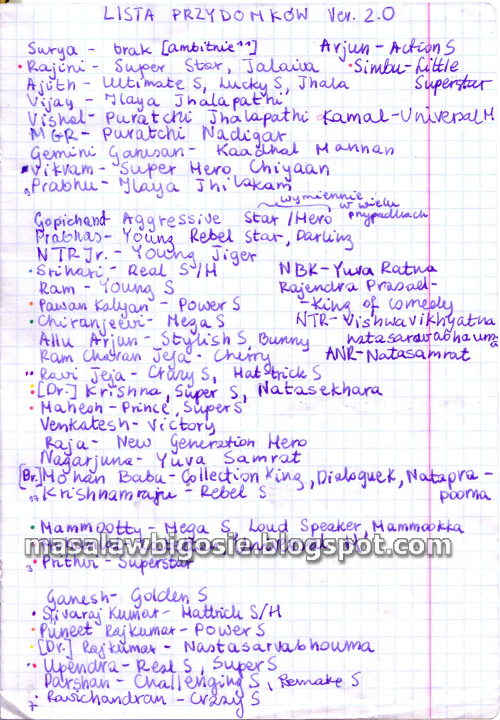 LISTA PRZYDOMKÓW Ver. 2.0
Surya - brak [ambitnie^^] Arjun - Action S
Rajini - Super Star, Jalaiva Simbu - Little Superstar
Ajith - Ultimate S, Lucky S, Jhala
Vijay - Ilaya Jhalapathi
Vishal - Puratchi Jhalapathi Kamal - Universal H
MGR - Puratchi Nadigar
Gemini Ganesan - Kaadhal Mannan
Vikram - Super Hero, Chiyaan
Prabhu - Ilaya Jhilakam
wymiennie w wielu przypadkach
Gopichand Aggressive Star/Hero
Prabhas - Young Rebel Star, Darling
NTR Jr. - Young Jiger
Srihari - Real S/H NBK - Yuva Ratna
Ram - Young S Rajendra Prasad - King of comedy
Pawan Kalyan - Power S
Chiranjeevi - Mega S NTR - Vishwavikhyatna
Allu Arjun - Stylish S, Bunny
Ram Charan Jeja - Cherry ANR - Natasamrat
Ravi Jeja - Crazy S, Hattrick S
[Dr.] Krishna, Super S, Natasekhara
Mahesh - Prince, Super S
Venkatesh - Victory
Raja - New Generation Hero
Nagarjuna - Yuva Samrat
[Dr.] Mohan Babu - Collection King, Dialogue K, Nataprapoorna
Krishnamraju - Rebel S
Mammootty - Mega S, Loud Speaker, Mammookka
masalawbigosie.blogspot.com
Prithvi - Superstar
Ganesh - Golden S
Sivaraj Kumar - Hattrick S/H
Puneet Rajkumar - Power S
[Dr.] Rajkumar - Nastasarvabhouma
Upendra - Real S, Super S
Darshan - Challenging S, Remake S
Ravichandran - Crazy S